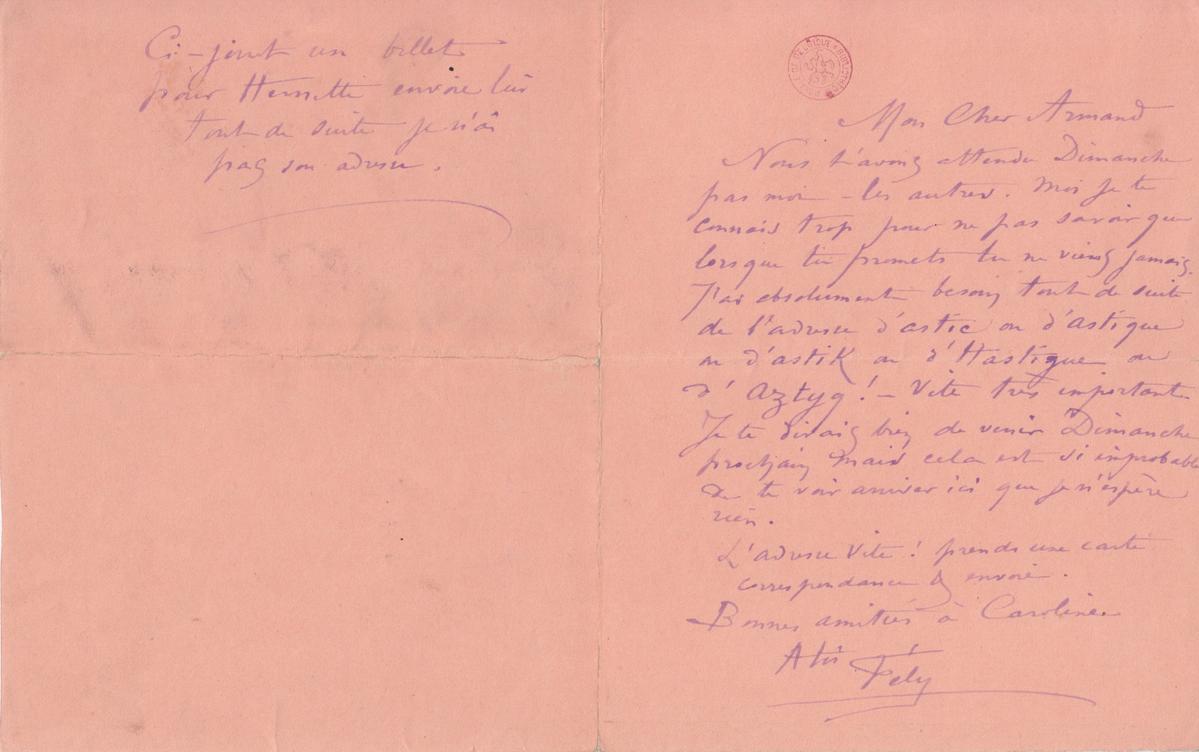 Mon Cher Armand
Nous t'avons attendu Dimanche
pas moi – les autres. Moi je te
connais trop pour ne pas savoir que
lorsque tu promets tu ne viens jamais.
J'ai absolument besoin tout de suite
de l'adresse d'astic ou d'Astique
ou d'astiK ou d'Hastigue ou
d'Aztyq ! – Vite très important
Je te dirais bien de venir Dimanche
prochain mais cela est si improbable
de te voir arriver ici que je n'espère
rien.
L'adresse Vite ! prends une carte
correspondance & envoie.
Bonnes amitiés à Caroline
A toi Fély
Ci-joint un billet
pour Henriette envoie lui
tout de suite je n'ai
pas son adresse.